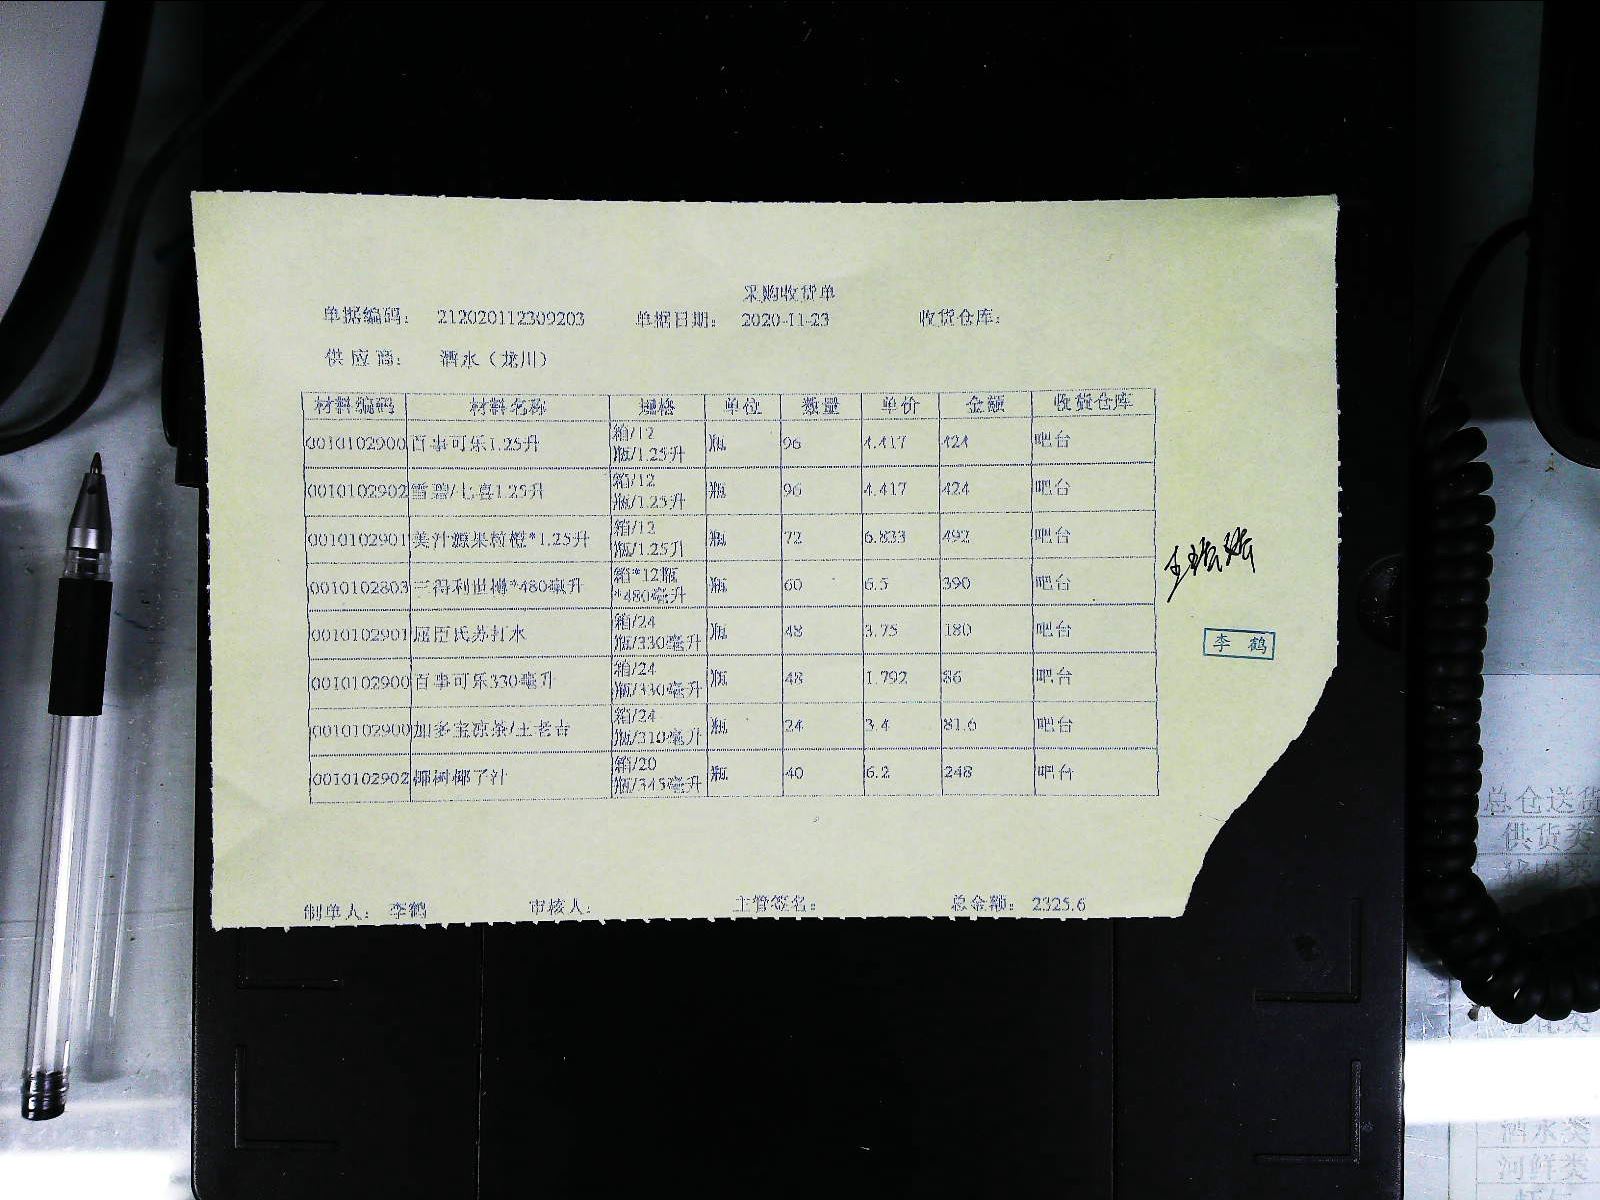 采购收货单
单据编码： 212020112309203 单据日期： 2020-11-23 收货仓库：
供应商： 酒水（龙川）
材料编码 材料名称 规格 单位 数量 单价 金额 收货仓库
0010102900 百事可乐1.25升 箱/12瓶/1.25升 瓶 96 4.417 424 吧台
0010102902 雪碧/七喜1.25升 箱/12瓶/1.25升 瓶 96 4.417 424 吧台
0010102901 美汁源果粒橙*1.25升 箱/12瓶/1.25升 瓶 72 6.833 492 吧台
0010102803 三得利世樽*480毫升 箱*12瓶*480毫升 瓶 60 6.5 390 吧台
0010102901 屈臣氏苏打水 箱/24瓶/330毫升 瓶 48 3.75 180 吧台
0010102900 百事可乐330毫升 箱/24瓶/330毫升 瓶 48 1.792 86 吧台
0010102900 加多宝凉茶/王老吉 箱/24瓶/310毫升 瓶 24 3.4 81.6 吧台
0010102902 椰树椰子汁 箱/20瓶/345毫升 瓶 40 6.2 248 吧台
李鹤
制单人： 李鹤 审核人： 主管签名： 总金额： 2325.6
总仓送货
供货类
酒水类
河鲜类